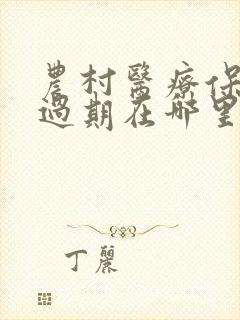 農村醫療保
過期在哪里
丁麗